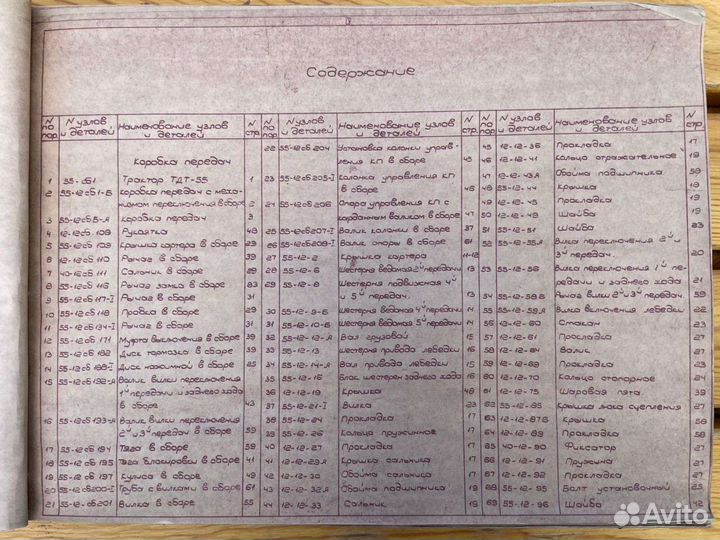 Содержание
N по пор. N узлов и деталей Наименование узлов и деталей N стр.
Коробка передач
1 55-сб1 Трактор ТДТ-55 1
2 55-12сб1-Б Коробка передач с меха-
низмом переключения в сборе 2
3 55-12сб5-А Коробка передач 3
4 12-12сб.108 Рукоятка 48
5 55-12сб109 Крышка картера в сборе 29
6 12-12сб110 Рычаг в сборе 39
7 40-12сб111 Сальник в сборе 29
8 55-12сб116 Рычаг замка в сборе 83
9 55-12сб117-I Рычаг в сборе 31
10 55-12сб118 Пробка в сборе 29
11 55-12сб134-I Рычаг в сборе 31
12 12-12сб171 Муфта выключения в сборе 39
13 55-12сб182 Диск тормозка в сборе 33
14 55-12сб183-I Диск нажимной в сборе 25
15 55-12сб192-А Валик вилки переключения
1й передачи и заднего хода
в сборе 43
16 55-12сб193-А Валик вилки переключения
2й и 3й передач в сборе 59
17 55-12сб194 Тяга в сборе 59
18 55-12сб195 Тяга блокировки в сборе 41
19 55-12сб197 Кулиса в сборе 49
20 55-12сб200-I Труба с вилками в сборе 61
21 55-12сб201 Вилка в сборе 55
N по пор. N узлов и деталей Наименование узлов и деталей N стр.
22 55-12сб204 Установка колонки управ-
ления КП в сборе 45
23 55-12сб205-I Колонка управления КП
в сборе 46
24 55-12сб206 Опора управления КП с
карданным валиком в сборе 47
25 55-12сб207-I Валик колонки в сборе 37
26 55-12сб208-I Валик опоры в сборе 61
27 55-12-2 Крышка картера 11-12
28 55-12-6 Шестерня ведомая 2й передачи 13
29 55-12-8 Шестерня подвижная 4й
и 5й передач. 13
30 55-12-9-Б Шестерня ведомая 4й передачи 14
31 55-12-10-Б Шестерня ведомая 5й передачи 14
32 55-12-12-А Вал грузовой 15
33 55-12-13 Шестерня привода лебедки 16
34 55-12-14-А Вал привода лебедки 15
35 55-12-16 Блок шестерен заднего хода 16
36 12-12-19 Крышка 48
37 55-12-21-I Вилка 23
38 55-12-24 Прокладка 17
39 55-12-26 Кольцо пружинное 17
40 12-12-27 Прокладка 17
41 12-12-29А Крышка сальника 17
42 12-12-30 Обойма сальника 17
43 12-12-32А Обойма подшипника 19
44 12-12-33 Сальник 19
N по пор. N узлов и деталей Наименование узлов и деталей N стр.
45 12-12-36 Прокладка 17
46 12-12-41 Кольцо отражательное 19
47 12-12-43А Обойма подшипника 59
48 55-12-44 Крышка 19
49 12-12-45 Прокладка 19
50 12-12-49 Шайба 19
51 55-12-51 Шайба 23
52 55-12-55А Вилка переключения 2й и
3й передач. 20
53 55-12-56 Вилка переключения 1й пе-
редачи и заднего хода 21
54 55-12-58Б Рычаг вилки 2й и 3й передач. 59
55 55-12-59А Вилка переключения лебедки 22
56 12-12-60 Стакан 23
57 12-12-61 Прокладка 27
58 12-12-64 Валик 27
59 12-12-69 Прокладка 23
60 12-12-70 Кольцо стопорное 24
61 12-12-75 Шаровая пята 39
62 55-12-85 Крышка люка сцепления 27
63 12-12-87Б Крышка 58
64 12-12-89 Прокладка 58
65 40-12-90 Фиксатор 27
66 12-12-91 Пружина 27
67 12-12-92 Прокладка 27
68 55-12-95 Болт установочный 25
69 55-12-96 Шайба 42
Avito